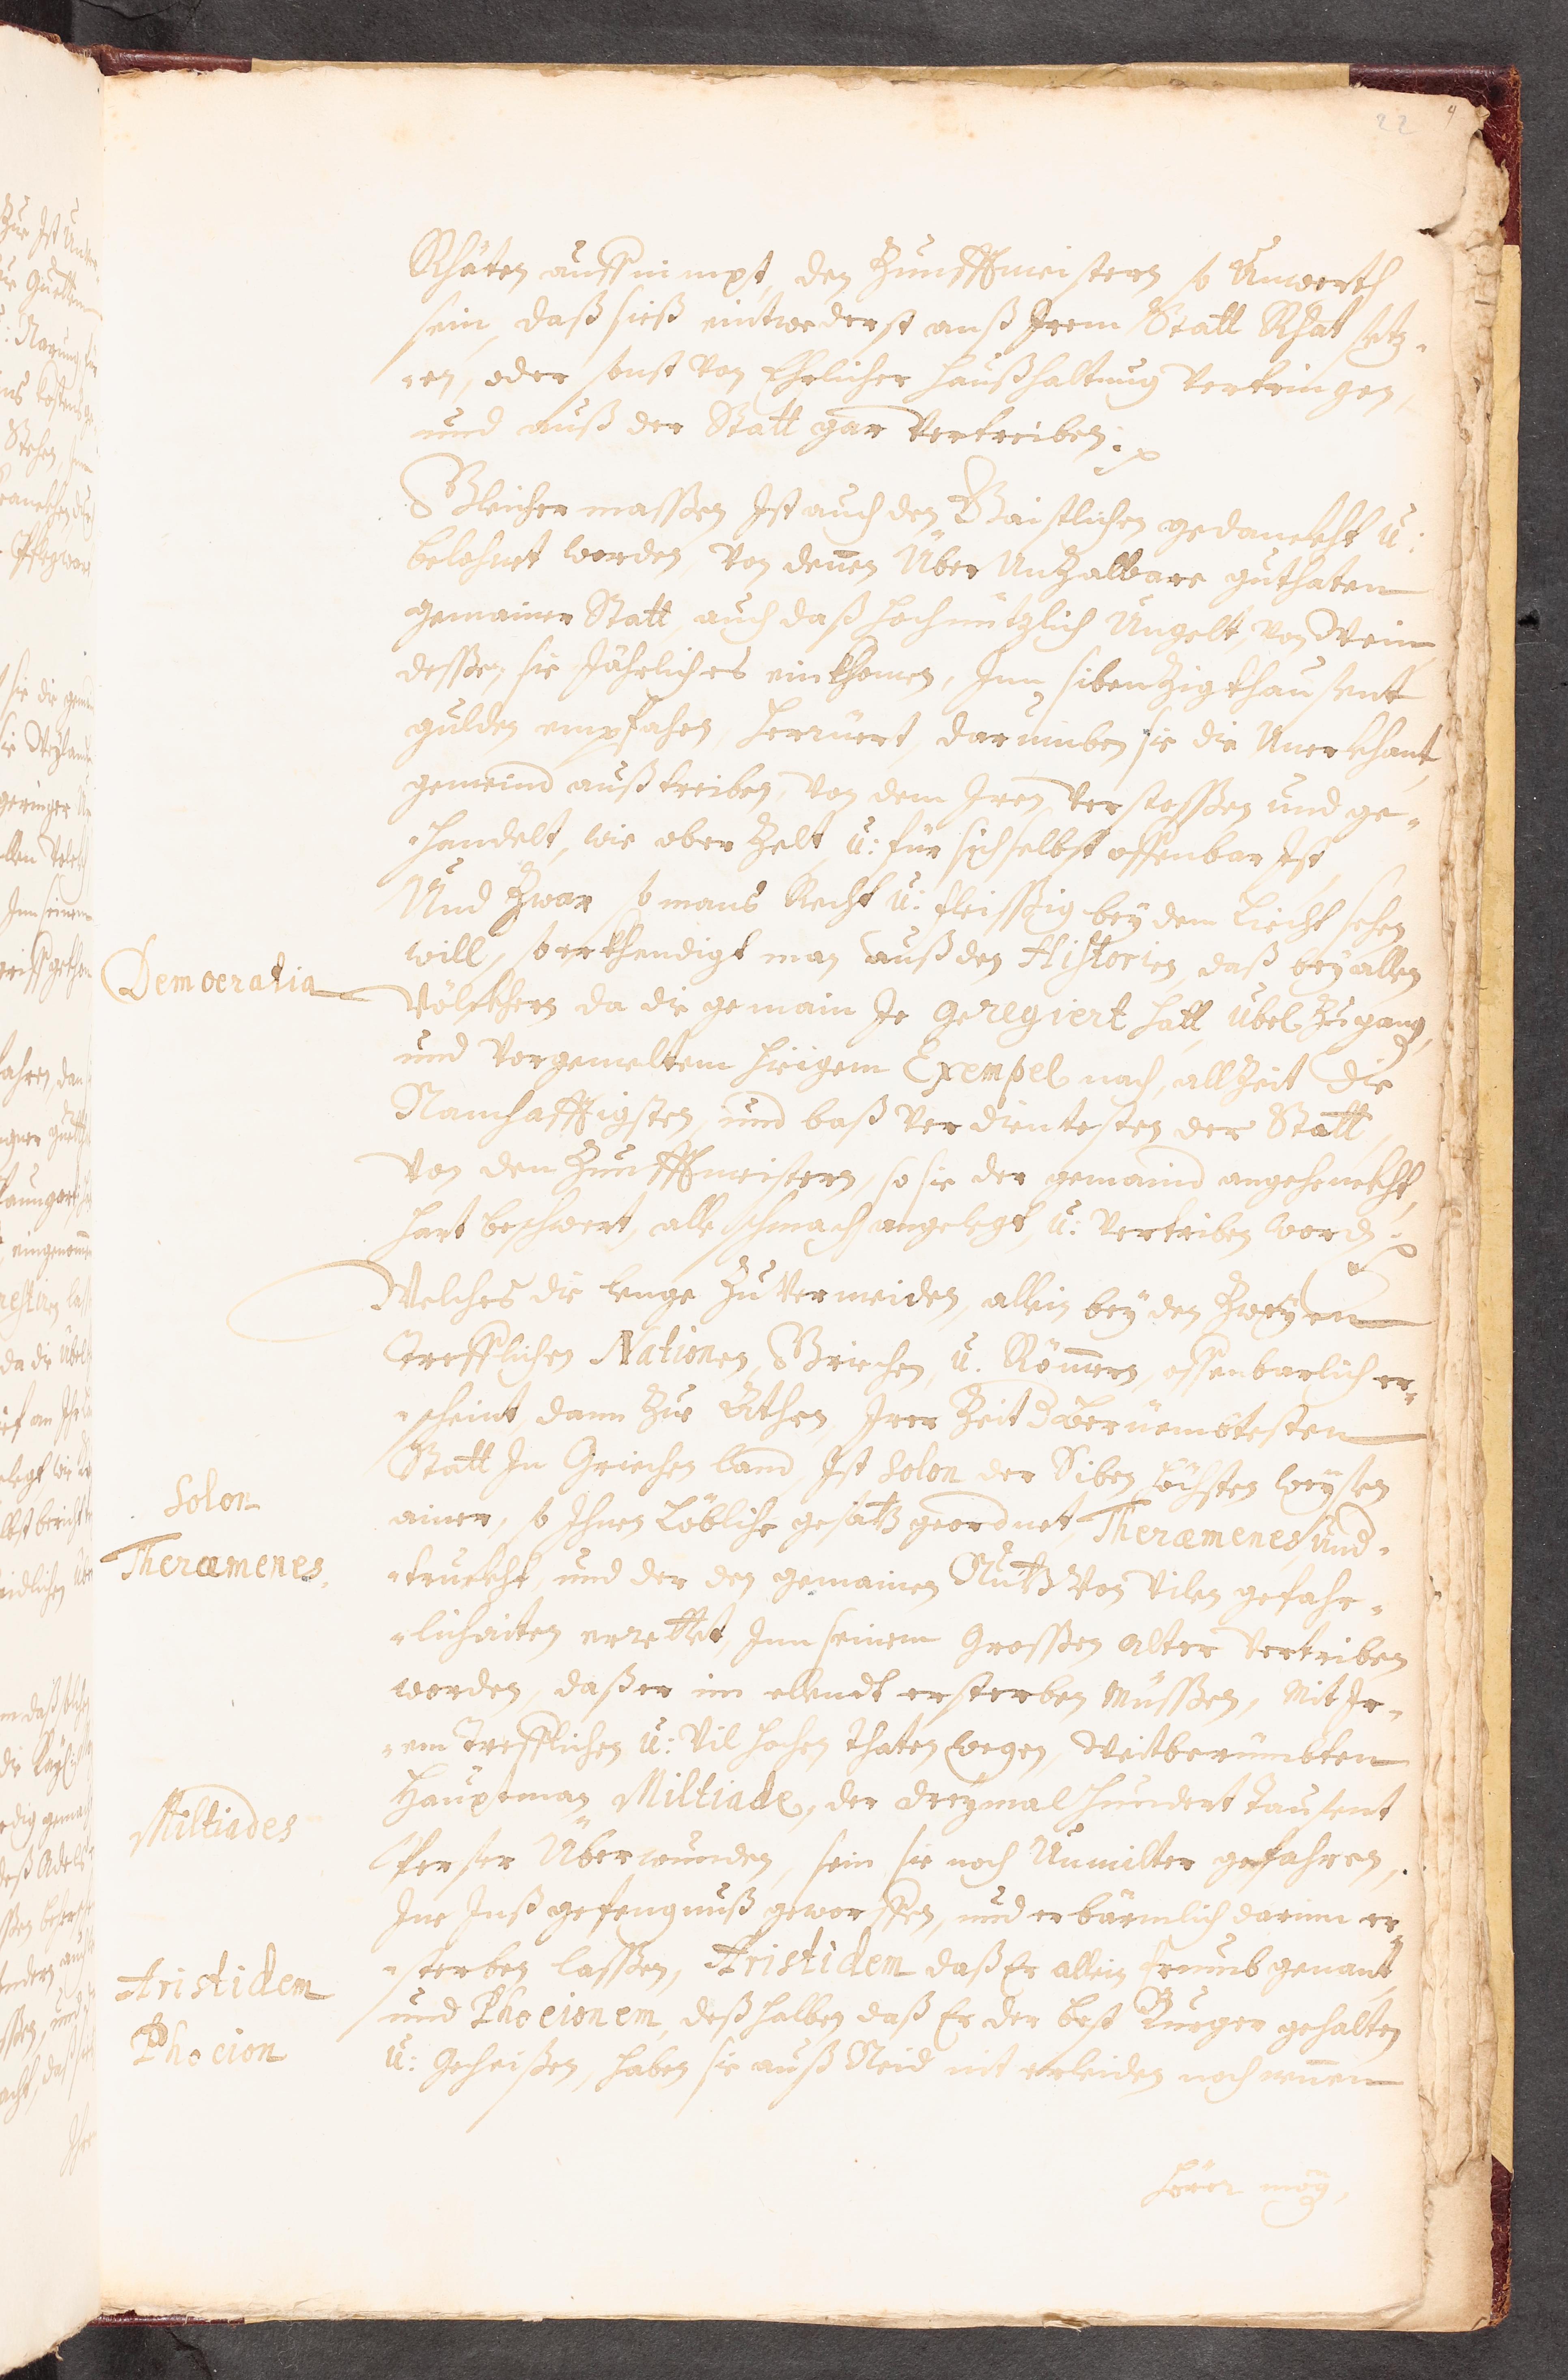 22 4
Rhäten auffnimpt, den Zunfftmeistern so Unwerth
sein, daß sieß eintwederst auß Irem Statt Rhat setz-
-en, oder sonst von Ehrlicher haußhaltung vertringen,
und auß der Statt gar vertreiben.
Gleicher massen Ist auch den Gaistlichen gedanckht u:
belohnet worden, von denen Über Unzalbare guthaten
gemainer Statt, auch daß hochnutzlich Ungelt, von Wein
dessen sie Jährliches einkhomen, Inn sibenzig thausent
gulden empfahen, herruert, darumben sie die Unerkhant,
gemeind außtreiben, von dem Iren verstossen und ge-
-handelt, wie oberzelt, u: für sich selbst offenbar Ist,
Und zwar so mans Recht u: fleissig bey dem Liecht sehen
will, so erkhendigt man auß den Historien, daß bey allen
Democratia
Völckhern da die gemain Je geregiert hatt, übel zugang,
und vorgemeltem hiesigem Exempel nach, allzeit die
Namhafftigsten, und baß verdientesten der Statt,
von den Zunfftmeistern, so sie der gemaind angehenckht,
hart beschwert, alle schmach angelegt, u: vertriben word.
Welches die lenge zu vermeiden, allein bey den Zweyen
Trefflichen Nationen, Griechen, u. Römern, offenbarlich er-
-scheint, dann zue Athen, Irer Zeit d berüembtesten
Statt In Griechenland, Ist Solon der Siben höchsten weysen
Solon
ainer, so Ihnen Löbliche gesatz geordnet, Theræmenes und-
Theræmenes.
-truckht, und der den gemainen Nutz von vilen gefahr-
-lichaiten errettet, Inn seinem Grossen alter vertriben
worden, daß er im ellendt ersterben müssen, mit Ir-
-em Trefflichen u: vil hohen thaten wegen, weitberümbten
Hauptman Miltiade, der dreymal hundert Tausent
Miltiades
Perser Überwunden, sein sie noch Unmilter gefahren,
Ine Inß gefengnuß geworffen, und erbärmlich darinn er-
-sterben lassen, Aristidem daß Er allein frumb genant,
Aristidem
und Phocionem, deßhalben daß Er der best Burger gehalten
Phocion
u: geheißen, haben sie auß Neid nit erleiden noch nennen
hören mög,